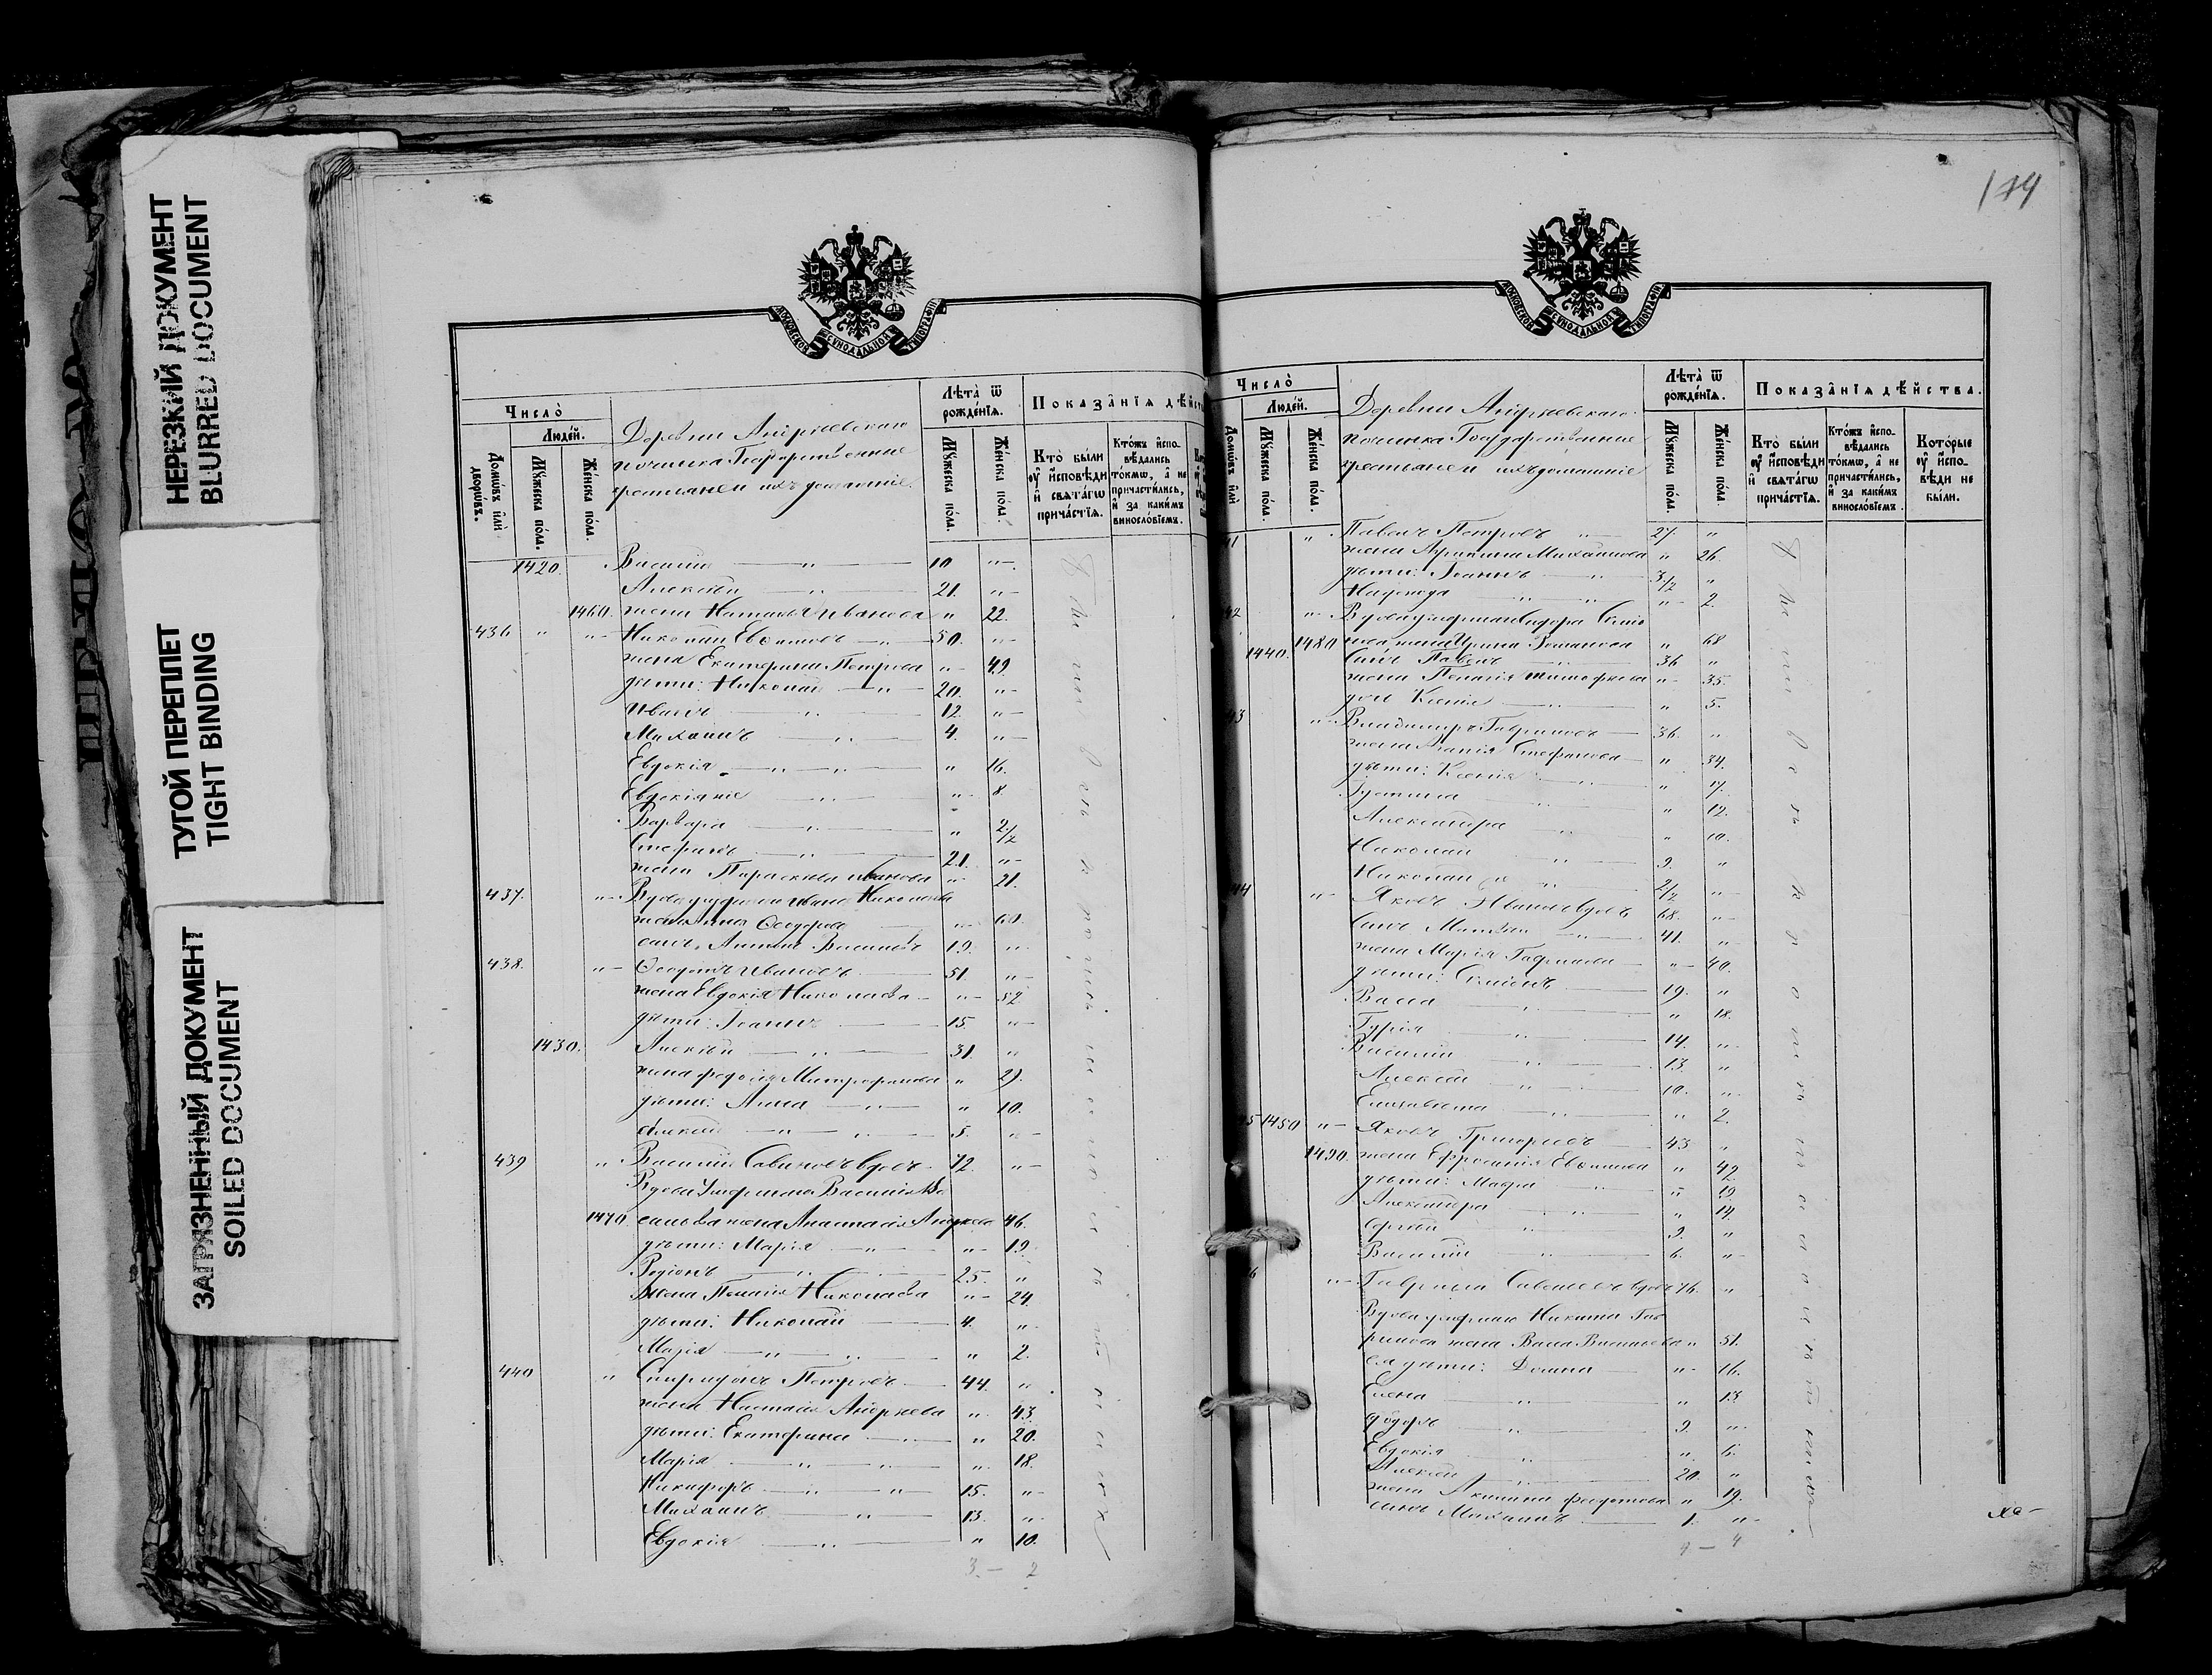 НЕРЕЗКИЙ ДОКУМЕНТ
BLURRED DOCUMENT
ТУГОЙ ПЕРЕПЛЕТ
TIGHT BINDING
ЗАГРЯЗНЕННЫЙ ДОКУМЕНТ
SOILED DOCUMENT
МОСКОВСКОЙ СѴНОДАЛЬНОЙ ТИПОГРАФІИ
Число̀
Люде́й.
Домѡ́въ и҆лѝ дворѡ́въ.
Мꙋ́жеска по́ла.
Же́нска по́ла.
Деревни Андреевскаго
починка Государственные
крестьяне и ихъ домашніе.
Лѣта̀ ѿ рожде́нїѧ.
Мꙋ́жеска по́ла.
Же́нска по́ла.
Показа̂нїѧ дѣйст
Кто̀ бы́ли ᲂу҆ и҆́сповѣди и҆ свѧта́гѡ прича́стїѧ.
Кто́жъ и҆спо-вѣ́дались то́кмѡ, а҆ не причасти́лись, и҆ за каки́мъ винослόвїемъ.
1420. Василій — " — 10 "
Алексѣй — " — 21. "
1460. жена Наталья Иванова " 22.
436 " " Николай Евѳимовъ — " — 50. "
жена Екатерина Петрова " 49.
дѣти: Николай — " — 20. "
Иванъ — " — 12. "
Михаилъ — " — 4. "
Евдокія — " — " 16.
" 8.
Варвара — " — " 2 1/2
Стефанъ — " — 21. "
жена Параскева Иванова " 21.
437. " Вдова Николаева
жена Анна Ѳеодорова " 60.
сынъ Василіевъ 19. "
438. " Ѳеодотъ Ивановъ — 51. "
жена Евдокія Николаева — " 52
дѣти: Іоаннъ — 15. "
1430. Алексѣй — " — 31. "
жена Федосія Митрофанова " 29.
дѣти: Анна — " — " 10.
Алексѣй — " — 5. "
439 " Василій Савиновъ вдовъ. 72. "
Вдова умершаго Василія Ва
1470. сильева жена Анастасія Андреева 46.
дѣти: Марія — " — " 19.
Родіонъ — " — 25. "
жена Пелагія Николаева " 24.
дѣти: Николай — 4. "
Марія — " — " 2.
440 " Спиридонъ Петровъ — 44. "
жена Наталія Андреева " 43.
дѣти: Екатерина — " — " 20.
Марія — " — " 18.
Никифоръ — " — 15. "
Михаилъ — " — 13. "
Евдокія — " — " 10.
3 — 2
МОСКОВСКОЙ СѴНОДАЛЬНОЙ ТИПОГРАФІИ
Число̀
Люде́й.
Домѡ́въ и҆лѝ
Мꙋ́жеска по́ла.
Же́нска по́ла.
Деревни Андреевскаго
починка Государственные
крестьяне и ихъ домашніе
Лѣта̀ ѿ рожде́нїѧ.
Мꙋ́жеска по́ла.
Же́нска по́ла.
Показа̂нїѧ дѣ́йства.
Кто̀ бы́ли ᲂу҆ и҆́сповѣди и҆ свѧта́гѡ прича́стїѧ.
Кто́жъ и҆спо-вѣ́дались то́кмѡ, а҆ не причасти́лись, и҆ за каки́мъ винослόвїемъ.
Кото́рые ᲂу҆ и҆́спо-вѣди не бы́ли.
41 " Павелъ Петровъ " 27. "
жена Михаилова " 26.
дѣти: Іоаннъ — " — 3 1/2 "
Надежда " " 2.
42 " Вдова умершаго Сидора Симо
1480 нова жена Ирина Романова " 68
1440. сынъ Павелъ — " — 36 "
жена Пелагія Тимофеева " 35.
дочь Ксенія — " — " 5.
43 " Владиміръ Гавриловъ — 36. "
жена Стефанова — " 34.
дѣти: Ксенія — " — " 17.
Іустина — " — " 12.
Александра " " 10.
Николай " 9. "
Николай " 2 1/2 "
44 " Яковъ Ивановъ вдовъ 68. "
сынъ — " — 41. "
жена Марія Гаврилова — " 40.
дѣти: Симеонъ — 19. "
Васса — " — " 18.
Гурія — " — 14. "
Василій — " — 13. "
Алексѣй — " — 10. "
Елизавета " " 2.
45 1450 " Яковъ Григорьевъ — 43 "
1490. жена Ефросинія Евѳимова " 42
дѣти: Мавра " " 19.
Александра " " 14.
Сергѣй " 9. "
Василій " 6. "
46 " Гаврилъ Савельевъ вдовъ 76. "
Вдова умершаго Никиты Гав
рилова жена Васса Васильева " 51.
ея дѣти: Домна — " 16.
Елена " " 13
Ѳедоръ " 9. "
Евдокія " " 6.
Алексѣй 20. "
жена Акилина Федотова " 19.
сынъ Михаилъ 1. "
4 — 4